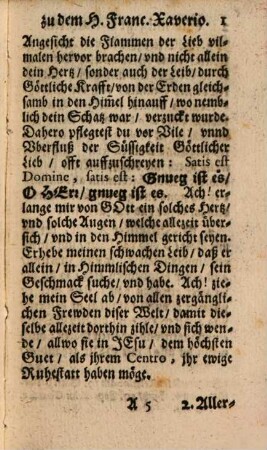 zu dem H. Franc. Xaverio. 1
Angesicht die Flammen der Lieb vil-
malen hervor brachen/ und nicht allein
dein Hertz/ sonder auch der Leib/ durch
Göttliche Krafft/ von der Erden gleich-
samb in den Him̃el hinauff/ wo nemb-
lich dein Schatz war/ verzuckt wurde.
Dahero pflegtest du vor Vile/ vnnd
Vberfluß der Süssigkeit Göttlicher
Lieb/ offt auffzuschreyen: Satis est
Domine, satis est: Gnueg ist es/
O HErr/ gnueg ist es. Ach! er-
lange mir von GOtt ein solches Hertz/
und solche Augen/ welche allezeit über-
sich/ und in den Himmel gericht seyen.
Erhebe meinen schwachen Leib/ daß er
allein/ in Himmlischen Dingen/ sein
Geschmack suche/ und habe. Ach! zie-
he mein Seel ab/ von allen zergängli-
chen Frewden diser Welt/ damit die-
selbe allezeit dorthin zihle/ und sich wen-
de/ allwo sie in JEsu/ dem höchsten
Guet/ als jhrem Centro, jhr ewige
Ruhestatt haben möge.
A 5 2. Aller-